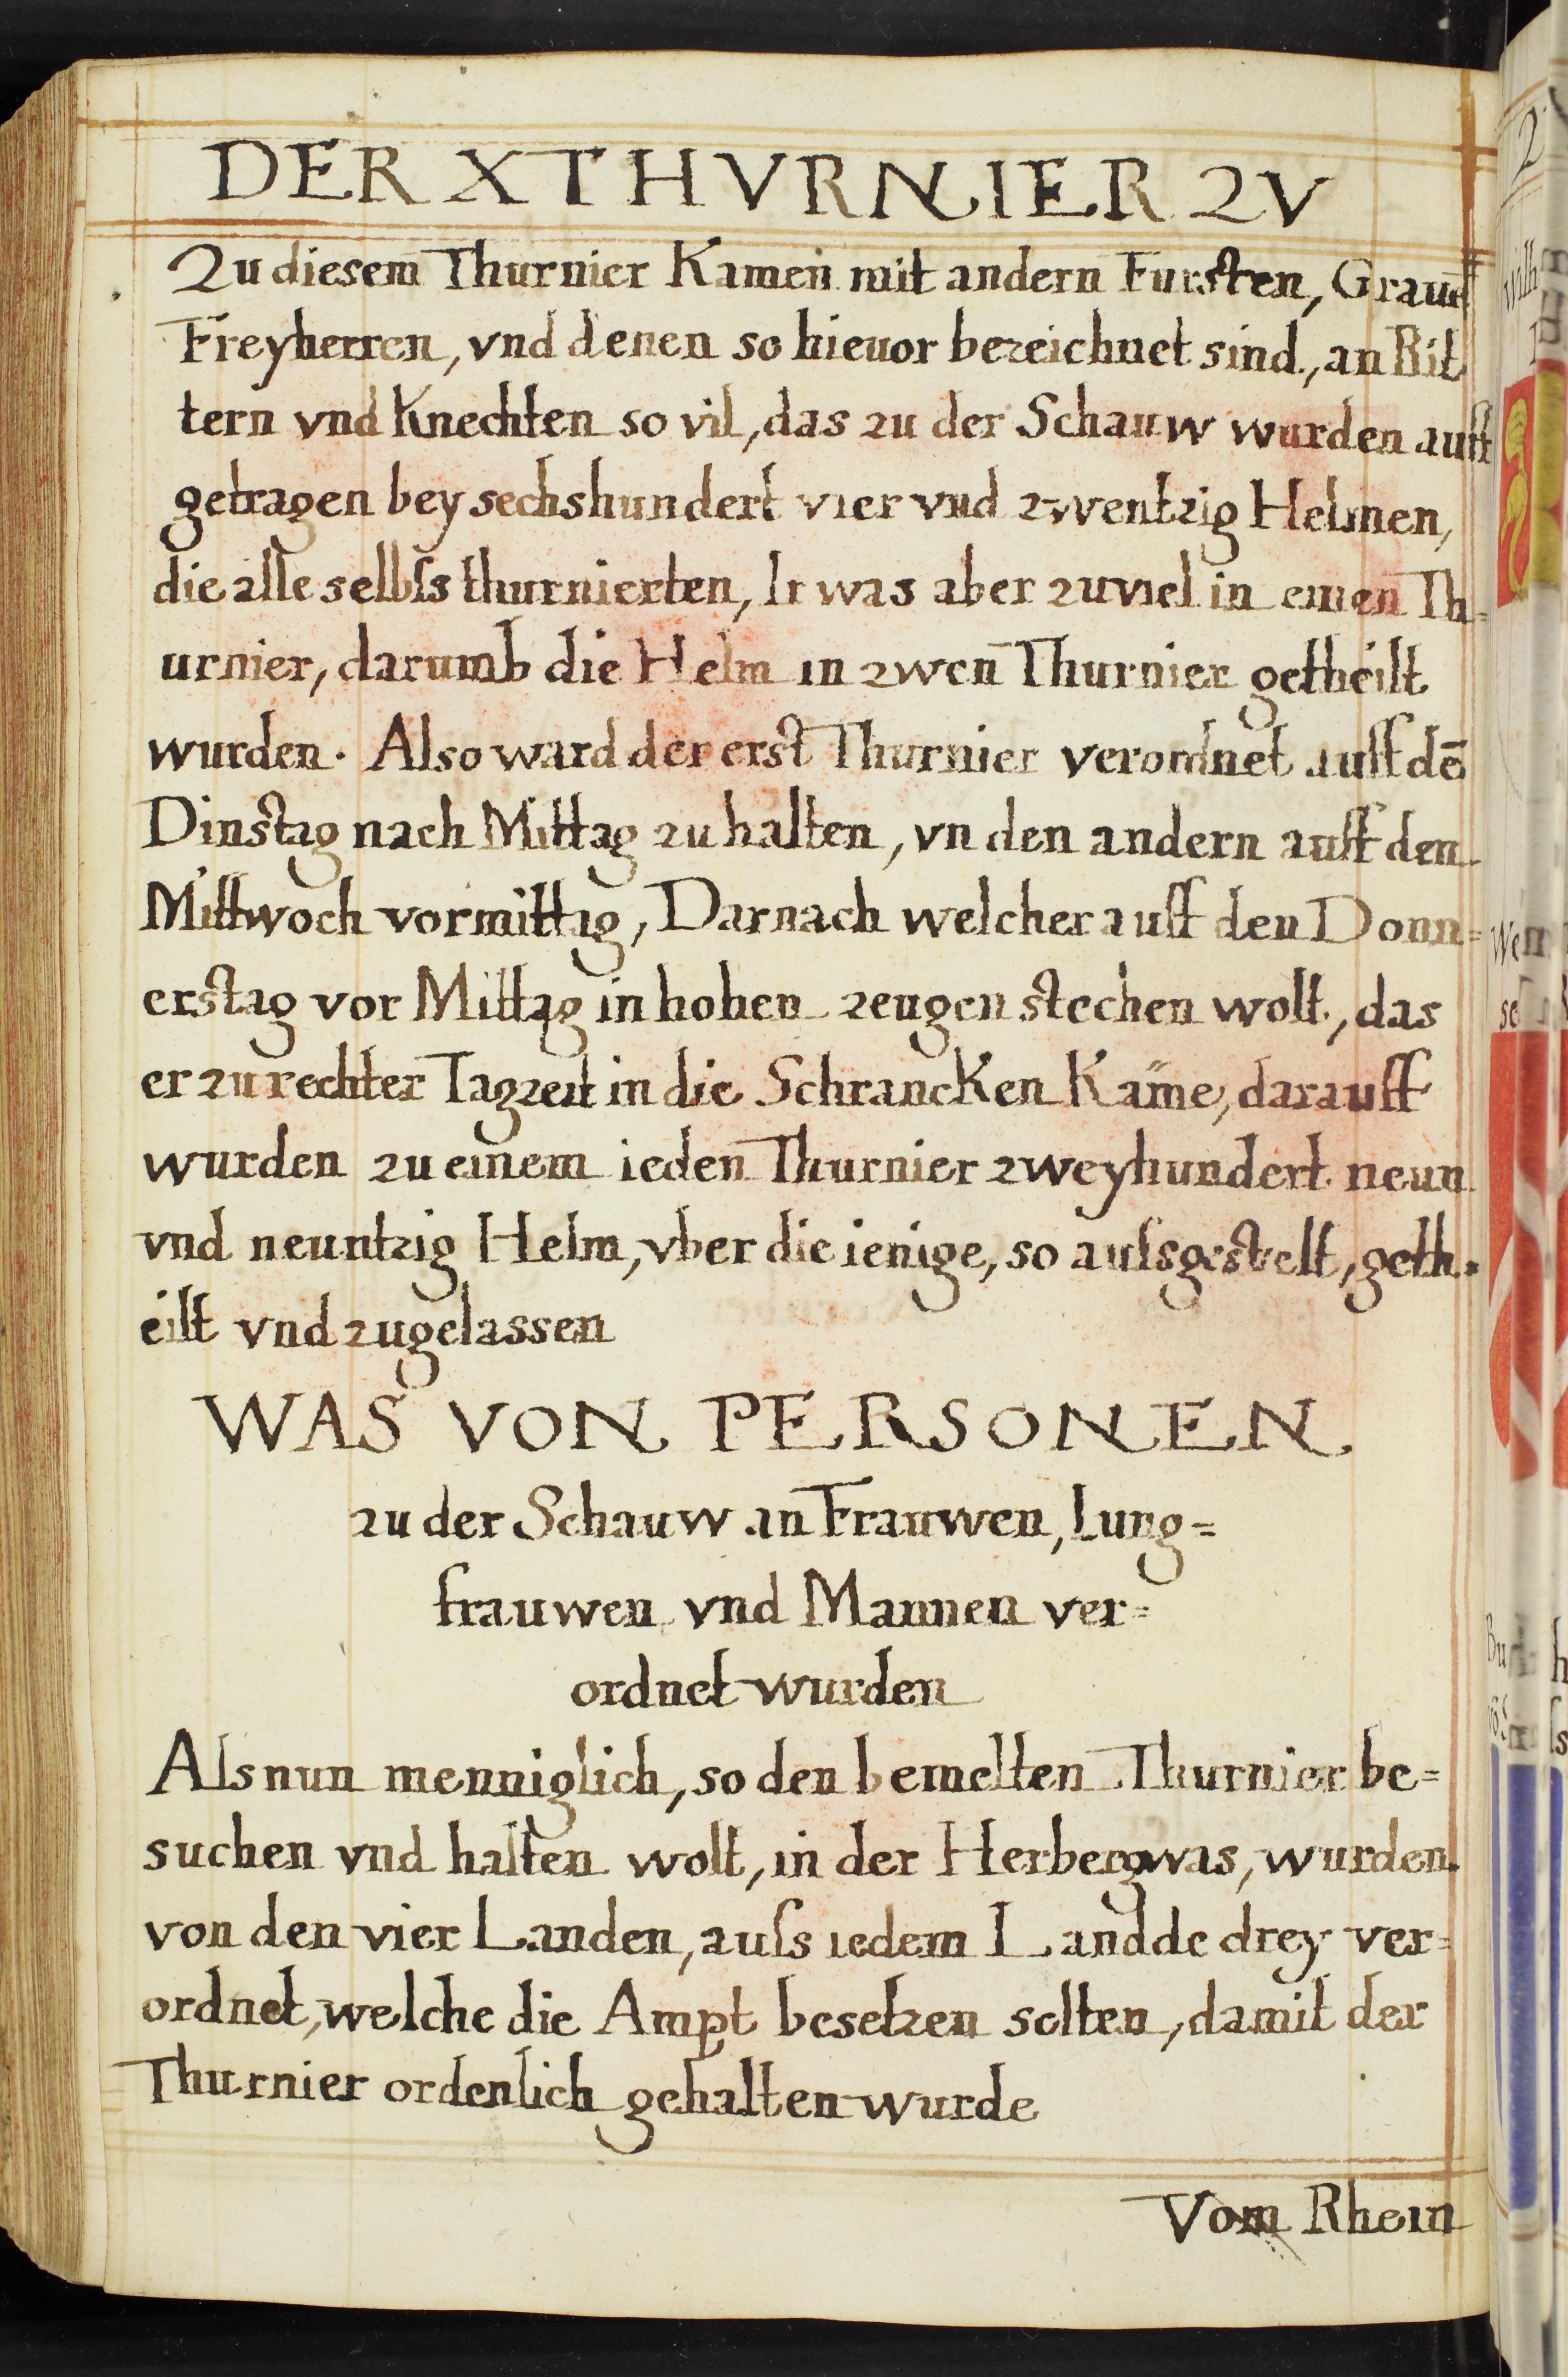 DER X THVRNIER ZV
Zu diesem Thurnier Kamen mit andern Fursten, Grauē
Freyherren, vnd denen so hieuor bezeichnet sind, an Rit
tern vnd Knechten so vil, das zu der Schauw wurden auff
getragen bey sechshundert vier vnd zwentzig Helmen,
die alle selbſs thurnierten, Ir was aber zuviel in einen Th=
urnier, darumb die Helm in zwen Thurnier getheilt
wurden. Also ward der erst Thurnier verordnet auff dē
Dinstag nach Mittag zu halten, vn den andern auff den
Mittwoch vormittag, Darnach welcher auff den Donn=
erstag vor Mittag in hohen zeugen stechen wolt, das
er zu rechter Tagzeit in die Schrancken Käme, darauff
wurden zu einem ieden Thurnier zweyhundert neun
vnd neuntzig Helm, vber die ienige, so auſsgestelt, geth=
eilt vnd zugelassen
WAS VON PERSONEN
zu der Schauw an Frauwen, Iung=
frauwen vnd Mannen ver=
ordnet wurden
Als nun menniglich, so den bemelten Thurnier be=
suchen vnd halten wolt, in der Herberg was, wurden
von den vier Landen, auſs iedem Landde drey ver=
ordnet, welche die Ampt besetzen solten, damit der
Thurnier ordenlich gehalten wurde
Vom Rhein